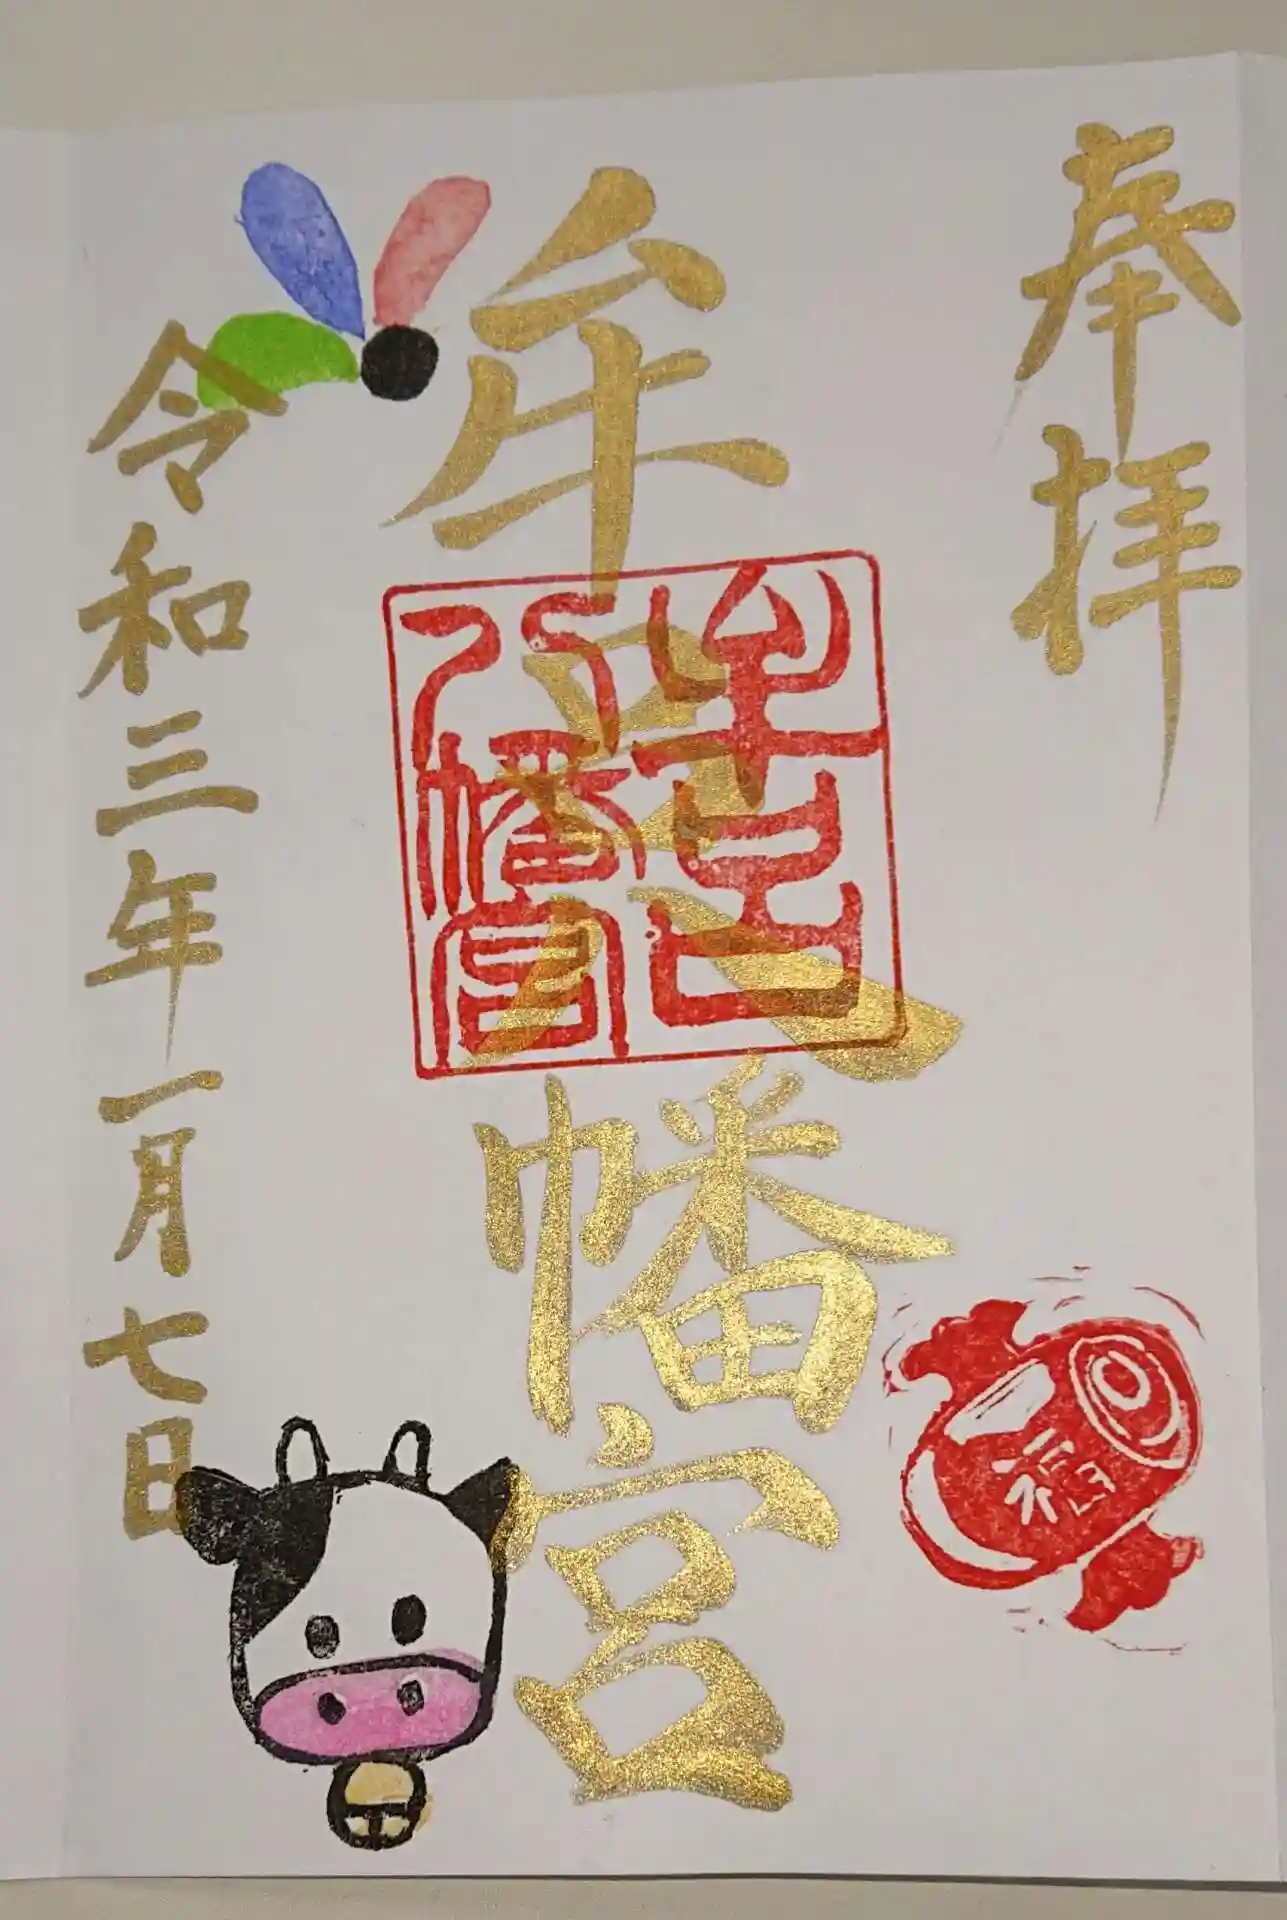 奉拝
牟呂八幡宮
牟呂
八幡宮
福
令和三年一月七日